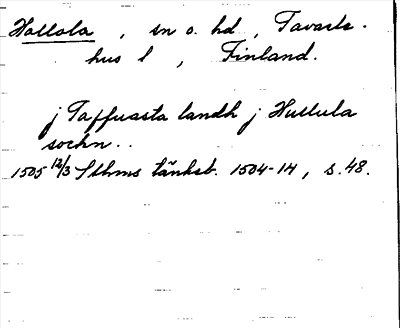 Hollola, sn o. hd, Tavaste-
hus l, Finland.
j Taffuasta landh j Hullula
sochn..
1505 12/3 Sthms tänkeb. 1504-14, s. 48.